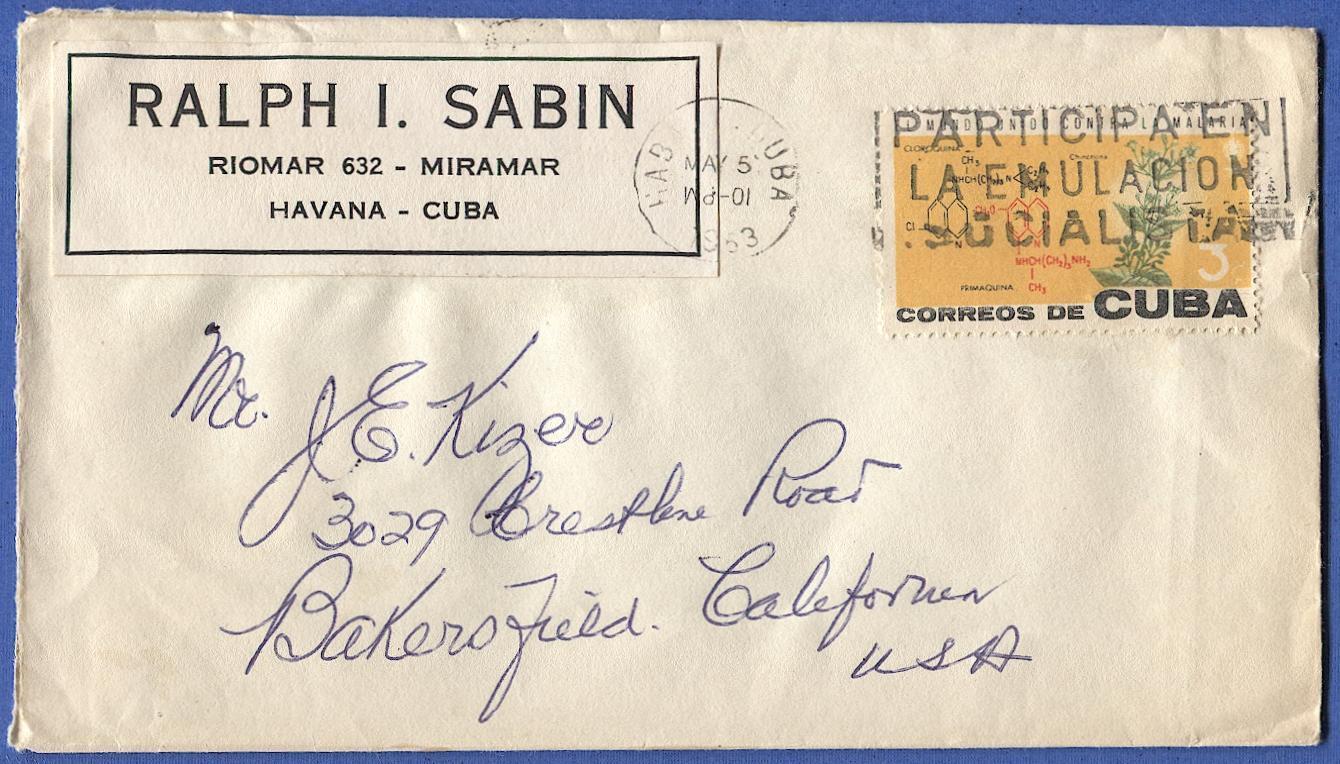 RALPH I. SABIN
RIOMAR 632 - MIRAMAR
HAVANA - CUBA
HAB CUBA
MAY 5
PM-10
1963
PARTICIPA EN
LA EMULACION
SOCIALISTA
MUNDO UNIDO CONTRA LA MALARIA
CLOROQUINA
CH3
Cl
N
CH3O
N
NHCH(CH2)3NH2
CH3
PRIMAQUINA
3
CORREOS DE CUBA
Mr. J. E. Kizer
3029 Crestline Road
Bakersfield. California
USA